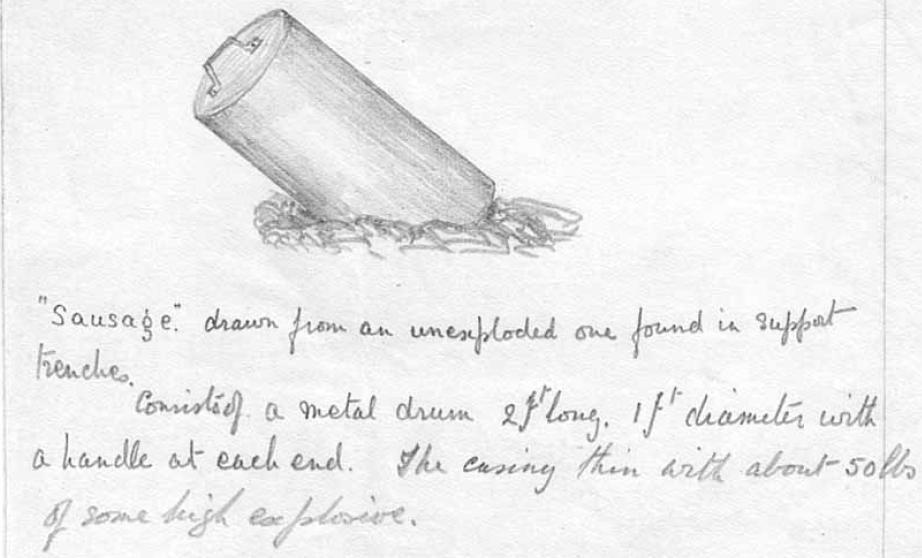 "Sausage". drawn from an unexploded one found in support
trenches.
Consists of a metal drum 2ft long. 1ft diameter with
a handle at each end. The casing thin with about 50lbs
of some high explosive.